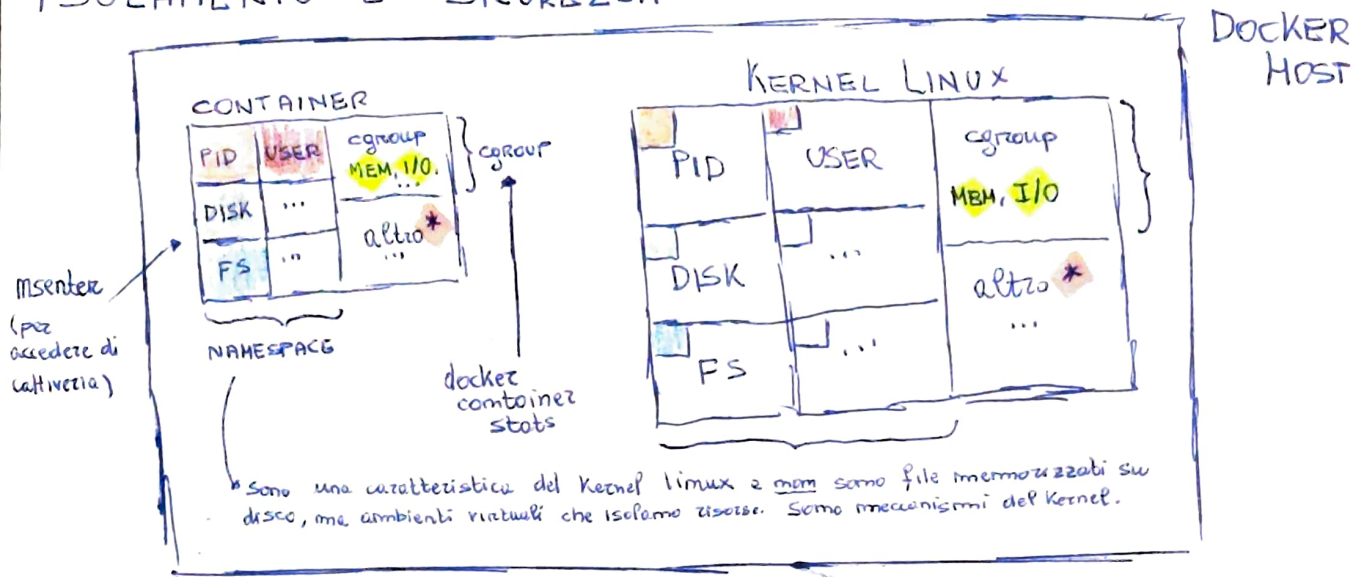 ISOLAMENTO E SICUREZZA
DOCKER
HOST
CONTAINER
PID
USER
cgroup
MEM, I/O.
...
CGROUP
DISK
...
altro*
...
FS
...
NAMESPACE
nsenter
(per
accedere di
cattiveria)
docker
container
stats
KERNEL LINUX
PID
USER
cgroup
MEM, I/O
DISK
...
altro *
...
FS
...
Sono una caratteristica del Kernel linux e non sono file memorizzati su
disco, ma ambienti virtuali che isolano risorse. Sono meccanismi del Kernel.